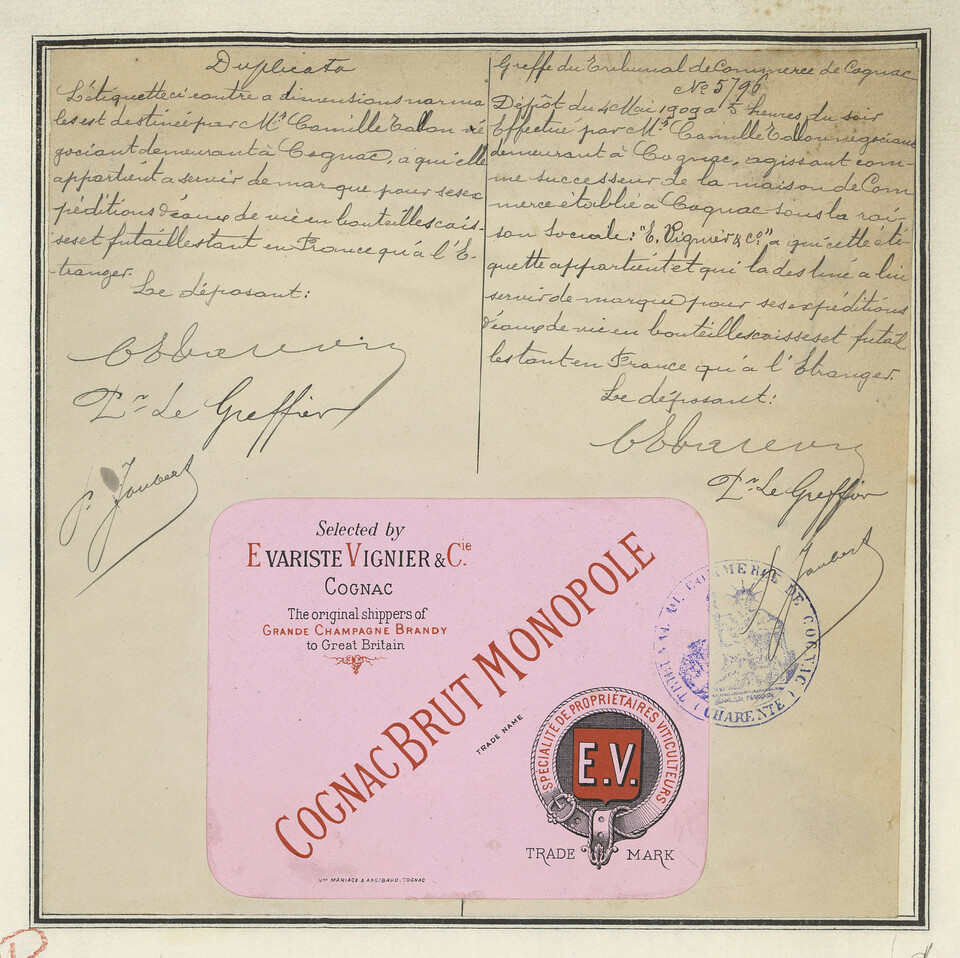 Duplicata
L'étiquette ci contre a dimensions norma
les est destinée par Mr. Camille Edon né
gociant demeurant à Cognac, a qui elle
appartient a servir de marque pour ses ex
péditions d'eaux de vie en bouteilles cais-
ses et futailles tant en France qu'à l'E-
tranger.
Le déposant:
Pr. Le Greffier
P. Joubert
Greffe du Tribunal de Commerce de Cognac
No 5796
Dépôt du 4 Mai 1909 a 5 heures du soir
Effectué par Mr. Camille Edon négociant
demeurant à Cognac, agissant com-
me successeur de la maison de Com
merce établie à Cognac sous la rai-
son sociale: "E. Vignier & Co", a qui cette éti
quette appartient et qui la destiné a lui
servir de marque pour ses expéditions
d'eaux de vie en bouteilles caisses et futail
les tant en France qu'à l'Etranger.
Le déposant:
Pr. Le Greffier
Joubert
Selected by
EVARISTE VIGNIER & Cie.
COGNAC
The original shippers of
GRANDE CHAMPAGNE BRANDY
to Great Britain
COGNAC BRUT MONOPOLE
TRADE NAME
SPÉCIALITÉ DE PROPRIÉTAIRES VITICULTEURS
E.V.
TRADE MARK
MARIAGE & ANGIBAUD, COGNAC
TRIBUNAL DE COMMERCE DE COGNAC
(CHARENTE)